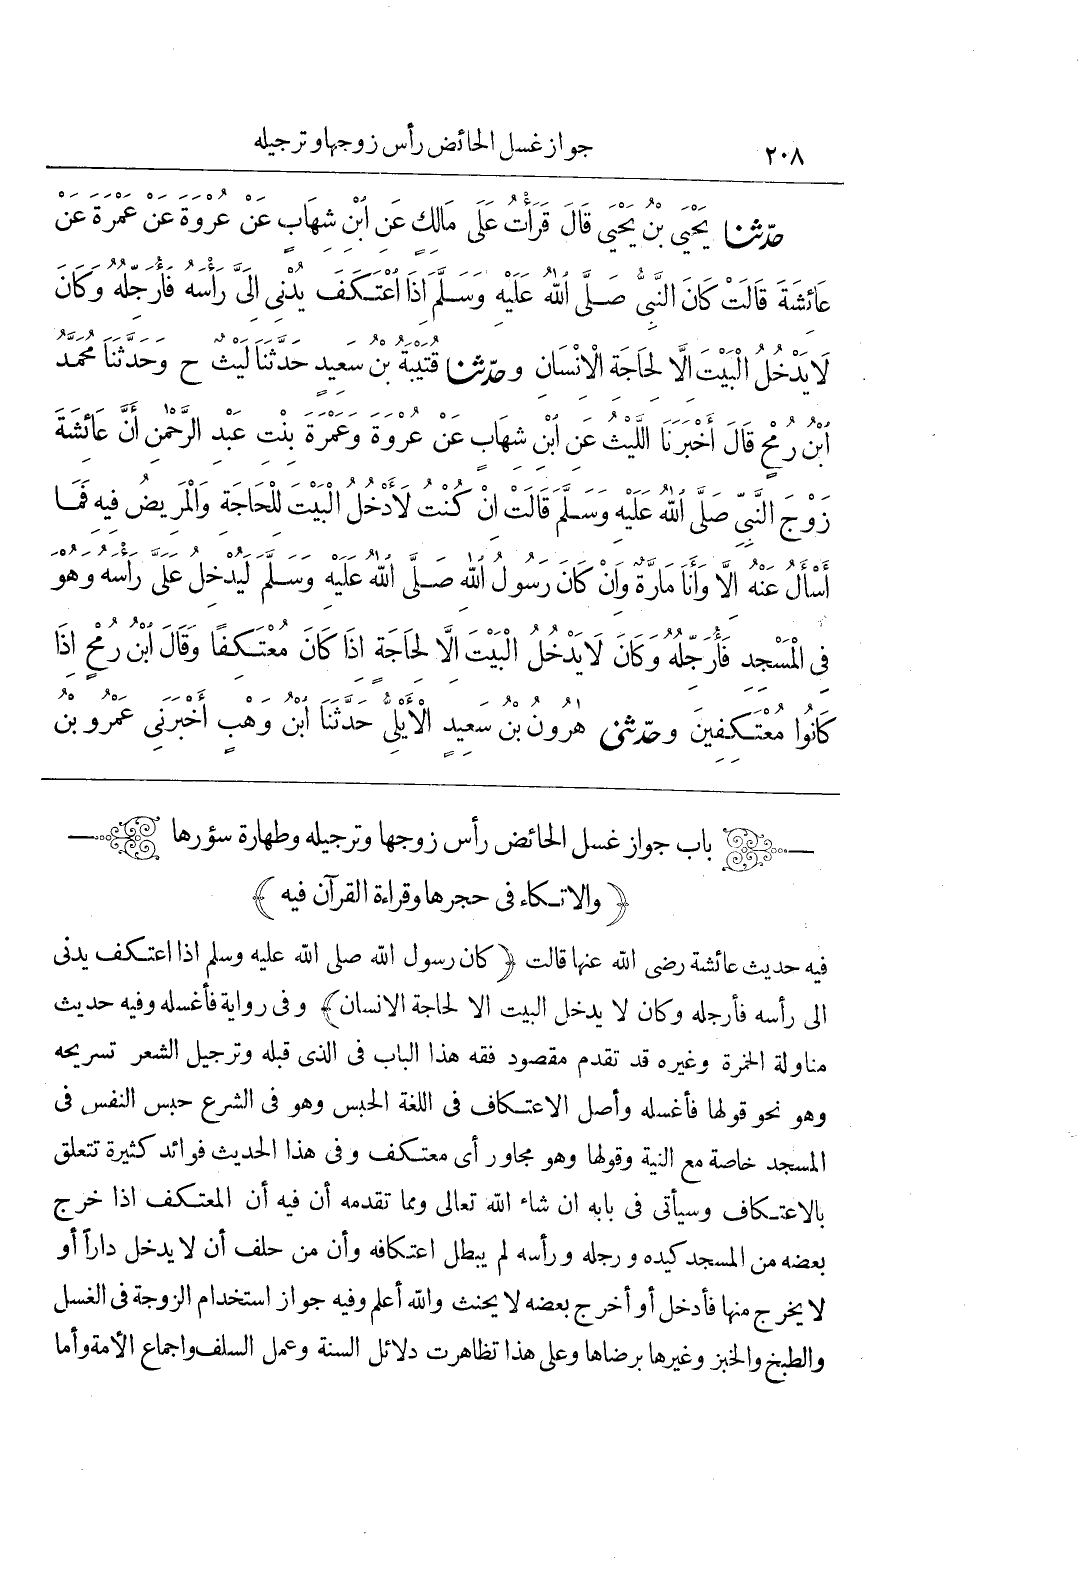 ٢٠٨ جواز غسل الحائض رأس زوجها وترجيله
حدّثنا يَحْيَى بْنُ يَحْيَى قَالَ قَرَأْتُ عَلَى مَالِكٍ عَنِ ابْنِ شِهَابٍ عَنْ عُرْوَةَ عَنْ عَمْرَةَ عَنْ
عَائِشَةَ قَالَتْ كَانَ النَّبِيُّ صَلَّى اللهُ عَلَيْهِ وَسَلَّمَ إِذَا اعْتَكَفَ يُدْنِي إِلَيَّ رَأْسَهُ فَأُرَجِّلُهُ وَكَانَ
لَا يَدْخُلُ الْبَيْتَ إِلَّا لِحَاجَةِ الْإِنْسَانِ وحدّثنا قُتَيْبَةُ بْنُ سَعِيدٍ حَدَّثَنَا لَيْثٌ ح وَحَدَّثَنَا مُحَمَّدُ
ابْنُ رُمْحٍ قَالَ أَخْبَرَنَا اللَّيْثُ عَنِ ابْنِ شِهَابٍ عَنْ عُرْوَةَ وَعَمْرَةَ بِنْتِ عَبْدِ الرَّحْمٰنِ أَنَّ عَائِشَةَ
زَوْجَ النَّبِيِّ صَلَّى اللهُ عَلَيْهِ وَسَلَّمَ قَالَتْ إِنْ كُنْتُ لَأَدْخُلُ الْبَيْتَ لِلْحَاجَةِ وَالْمَرِيضُ فِيهِ فَمَا
أَسْأَلُ عَنْهُ إِلَّا وَأَنَا مَارَّةٌ وَإِنْ كَانَ رَسُولُ اللهِ صَلَّى اللهُ عَلَيْهِ وَسَلَّمَ لَيُدْخِلُ عَلَيَّ رَأْسَهُ وَهُوَ
فِي الْمَسْجِدِ فَأُرَجِّلُهُ وَكَانَ لَا يَدْخُلُ الْبَيْتَ إِلَّا لِحَاجَةٍ إِذَا كَانَ مُعْتَكِفًا وَقَالَ ابْنُ رُمْحٍ إِذَا
كَانُوا مُعْتَكِفِينَ وحدّثني هٰرُونُ بْنُ سَعِيدٍ الْأَيْلِيُّ حَدَّثَنَا ابْنُ وَهْبٍ أَخْبَرَنِي عَمْرُو بْنُ
باب جواز غسل الحائض رأس زوجها وترجيله وطهارة سؤرها
﴿ والاتكاء فى حجرها وقراءة القرآن فيه ﴾
فيه حديث عائشة رضى الله عنها قالت ﴿ كان رسول الله صلى الله عليه وسلم اذا اعتكف يدنى
الى رأسه فأرجله وكان لا يدخل البيت الا لحاجة الانسان﴾ وفى رواية فأغسله وفيه حديث
مناولة الخمرة وغيره قد تقدم مقصود فقه هذا الباب فى الذى قبله وترجيل الشعر تسريحه
وهو نحو قولها فأغسله وأصل الاعتكاف فى اللغة الحبس وهو فى الشرع حبس النفس فى
المسجد خاصة مع النية وقولها وهو مجاور أى معتكف وفى هذا الحديث فوائد كثيرة تتعلق
بالاعتكاف وسيأتى فى بابه ان شاء الله تعالى ومما تقدمه أن فيه أن المعتكف اذا خرج
بعضه من المسجد كيده ورجله ورأسه لم يبطل اعتكافه وأن من حلف أن لا يدخل داراً أو
لا يخرج منها فأدخل أو أخرج بعضه لا يحنث والله أعلم وفيه جواز استخدام الزوجة فى الغسل
والطبخ والخبز وغيرها برضاها وعلى هذا تظاهرت دلائل السنة وعمل السلف واجماع الأمة وأما